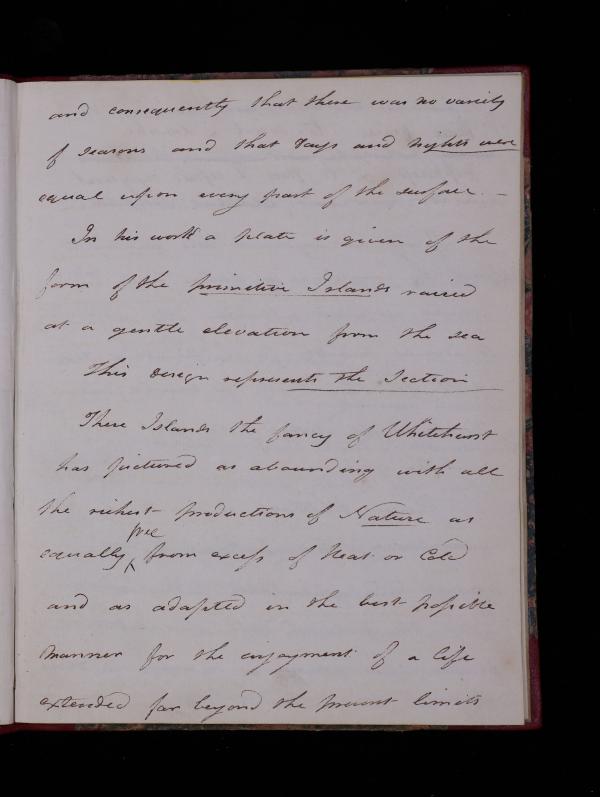 and consequently that there was no variety
of seasons and that Days and nights were
equal upon every part of the surface. –
In his work a plate is given of the
form of the primitive Islands raised
at a gentle elevation from the sea
This design represents the Section
These Islands the fancy of Whitehurst
has pictured as abounding with all
the richest productions of Nature as
free
equally from excess of Heat or Cold
and as adapted in the best possible
manner for the enjoyment of a life
extended far beyond the present limits